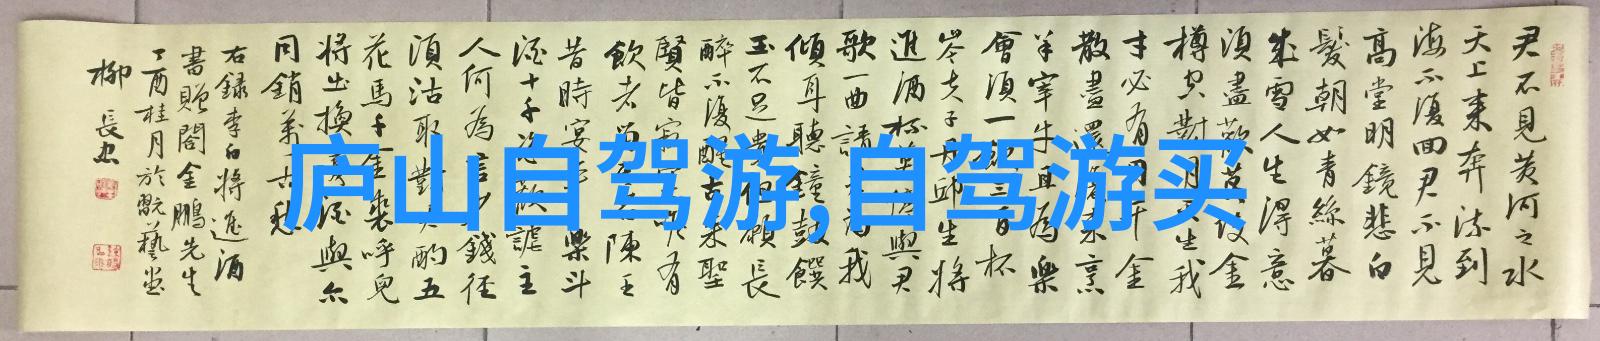 君不見黃河之水
天上來奔流到
海不復回君不見
高堂明鏡悲白
髮朝如青絲暮
成雪人生得意
須盡歡莫使金
樽空對月天生我
才必有用千金
散盡還復來烹
羊宰牛且為樂
會須一飲三百杯
岑夫子丹邱生將
進酒杯莫停與君
歌一曲請君為我
傾耳聽鐘鼓饌
玉不足貴但願長
醉不復醒古來聖
賢皆寂寞唯有
飲者留其名陳王
昔時宴平樂斗
酒十千恣歡謔主
人何為言少錢徑
須沽取對君酌五
花馬千金裘呼兒
將出換美酒與尔
同銷萬古愁
右錄李白將進酒
書贈閣金鵬先生
丁酉桂月於
藝堂
柳長忠
庐山自驾游,自驾游买